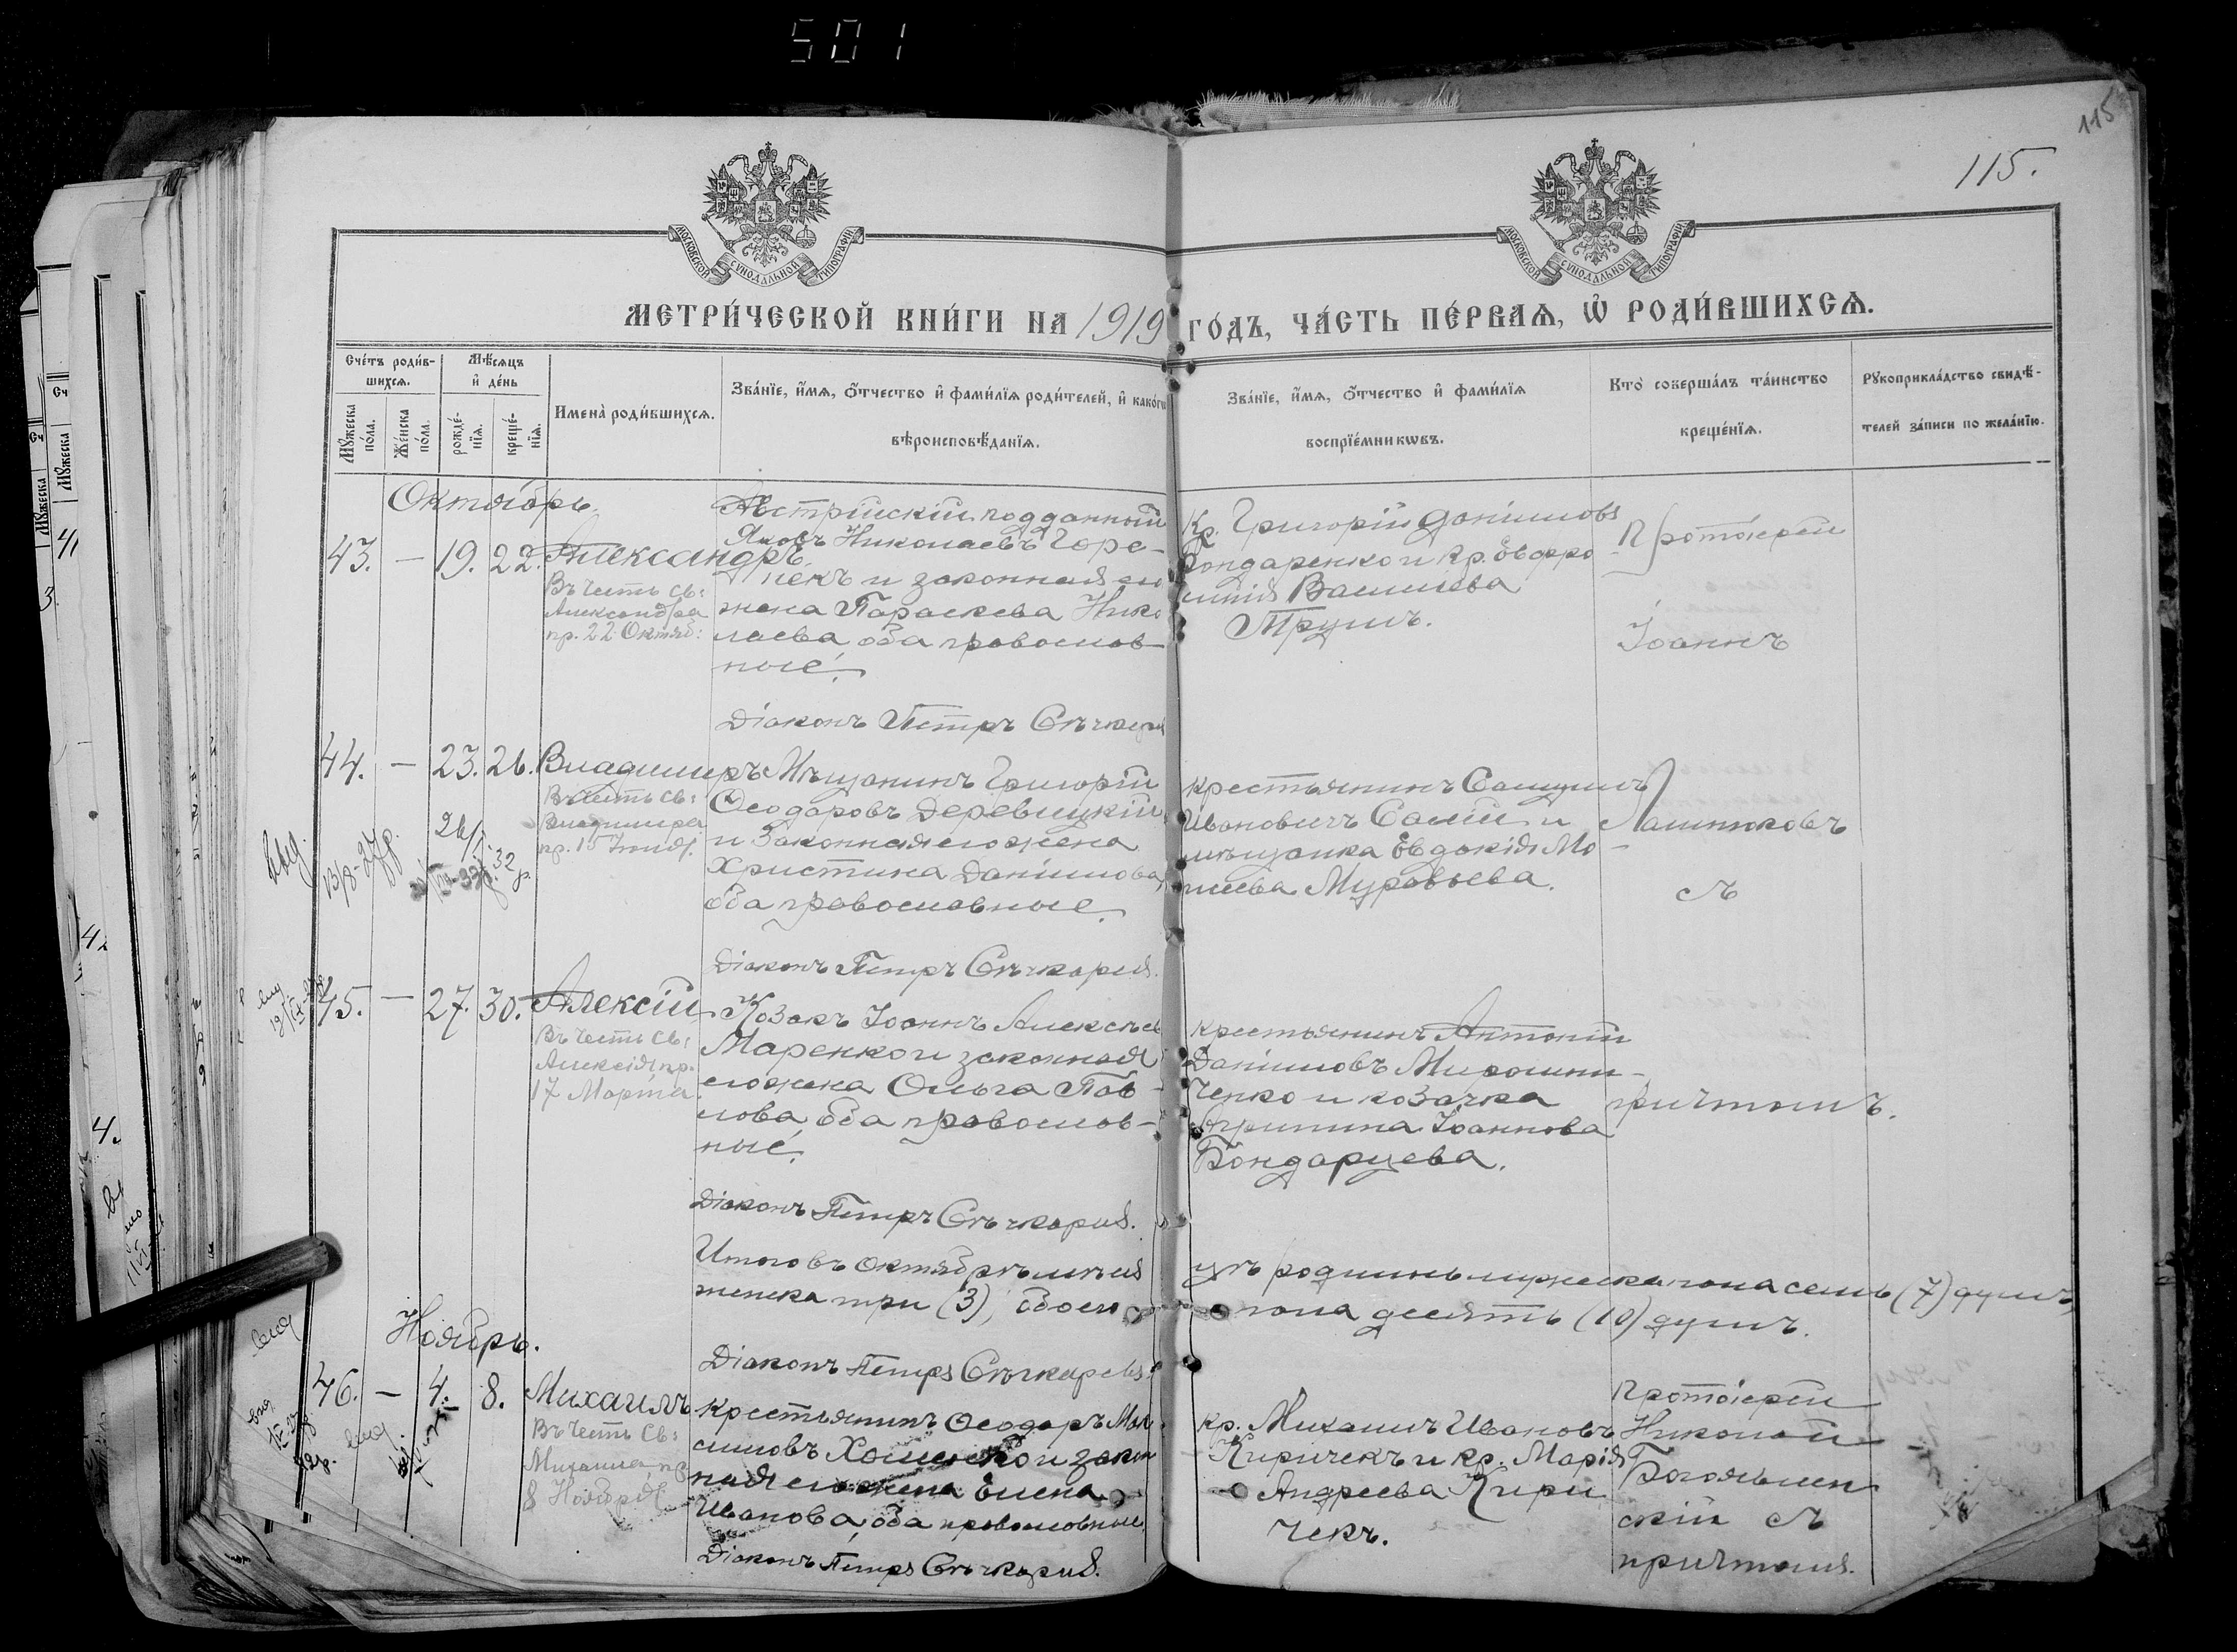 501
115
115.
МОСКОВСКОЙ СѴНОДАЛЬНОЙ ТИПОГРАФІИ
МОСКОВСКОЙ СѴНОДАЛЬНОЙ ТИПОГРАФІИ
МЕТРИ́ЧЕСКОЙ КНИ́ГИ НА 1919 ГО́ДЪ, ЧА́СТЬ ПЕ́РВАѦ, Ѡ҆ РОДИ́ВШИХСѦ.
Сче́тъ роди́в-
шихсѧ.
Мѣ́сѧцъ
и҆ де́нь
Мꙋ́жеска по́ла.
Же́нска по́ла.
рожде́-нїѧ.
креще́-нїѧ.
Имена̀ роди́вшихсѧ.
Зва́нїе, и҆́мѧ, ѻ҆́тчество и҆ фами́лїѧ роди́телей, и҆ како́гѡ
вѣроисповѣ́данїѧ.
Зва́нїе, и҆́мѧ, ѻ҆́тчество и҆ фами́лїѧ
воспрїе́мникѡвъ.
Кто̀ соверша́лъ та́инство
креще́нїѧ.
Рꙋкоприкла́дство свидѣ́-
телей за́писи по жела́нїю.
Октябрь.
43. — 19. 22. Александръ
Въ честь Св:
Александра
пр. 22 Октяб:
Австрійскій подданный
Яковъ Николаевъ Горе-
некъ и законная его
жена Параскева Нико
лаева, оба православ-
ные.
Діаконъ Петръ Сѣчкарев
Кр. Григорій Даніиловъ
Бондаренко и кр. Евфро
синія Василіева
Трушъ.
Протоіерей
Іоаннъ
44. — 23. 26. Владимиръ
Въ честь Св:
Владимира
пр. 15 Іюля.
Мѣщанинъ Григорій
Ѳеодоровъ Деревицкій
и законная его жена
Христина Даніилова,
оба православные.
Діаконъ Петръ Сѣчкарев.
крестьянинъ Самуилъ
Ивановичъ Салій и
мѣщанка Евдокія Мо-
исеева Муравьева.
Лашнюковъ
съ
45. — 27. 30. Алексій
Въ честь Св:
Алексія пр.
17 Марта
Козакъ Іоаннъ Алексѣев
Маренко и законная
его жена Ольга Пав-
лова, оба православ-
ные.
Діаконъ Петръ Сѣчкарев.
крестьянинъ Антоній
Даніиловъ Мирошни-
ченко и козачка
Агрипина Іоаннова
Бондарцева.
причтомъ.
Итого въ октябрѣ мѣся
цѣ родилось мужеска пола семь (7) душъ,
женска три (3), обоего
пола десять (10) душъ.
Діаконъ Петръ Сѣчкарев.
Ноябрь.
46. — 4. 8. Михаилъ
Въ честь Св:
Михаила пр.
8 Ноября
крестьянинъ Ѳеодоръ Мак
симовъ Хоменко и закон
ная его жена Елена
Иванова, оба православные.
Діаконъ Петръ Сѣчкарев.
кр. Михаилъ Ивановъ
Киричекъ и кр. Марія
Андреева Кири
чекъ.
Протоіерей
Николай
Богоявлен
скій съ
причтомъ.